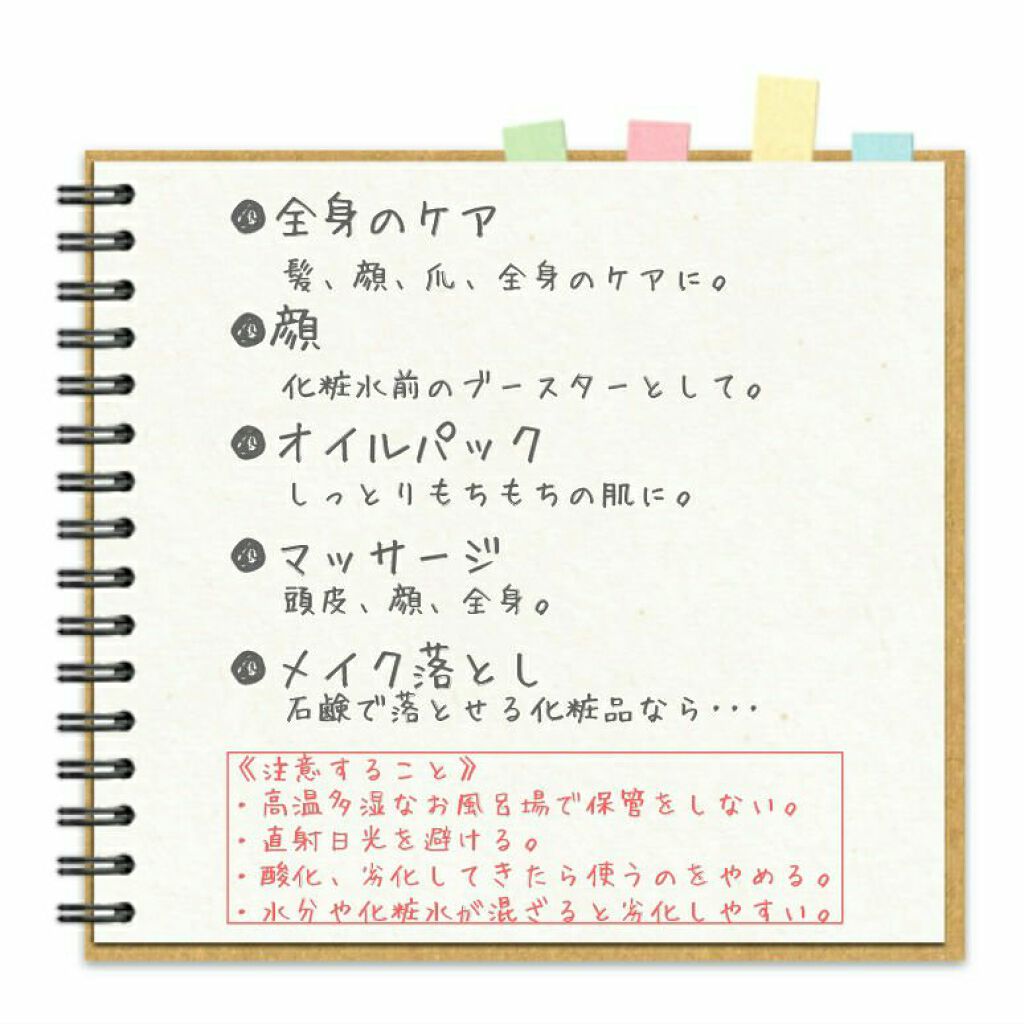 ●全身のケア
髪、顔、爪、全身のケアに。
●顔
化粧水前のブースターとして。
●オイルパック
しっとりもちもちの肌に。
●マッサージ
頭皮、顔、全身。
●メイク落とし
石鹸で落とせる化粧品なら・・・
《注意すること》
・高温多湿なお風呂場で保管をしない。
・直射日光を避ける。
・酸化、劣化してきたら使うのをやめる。
・水分や化粧水が混ざると劣化しやすい。